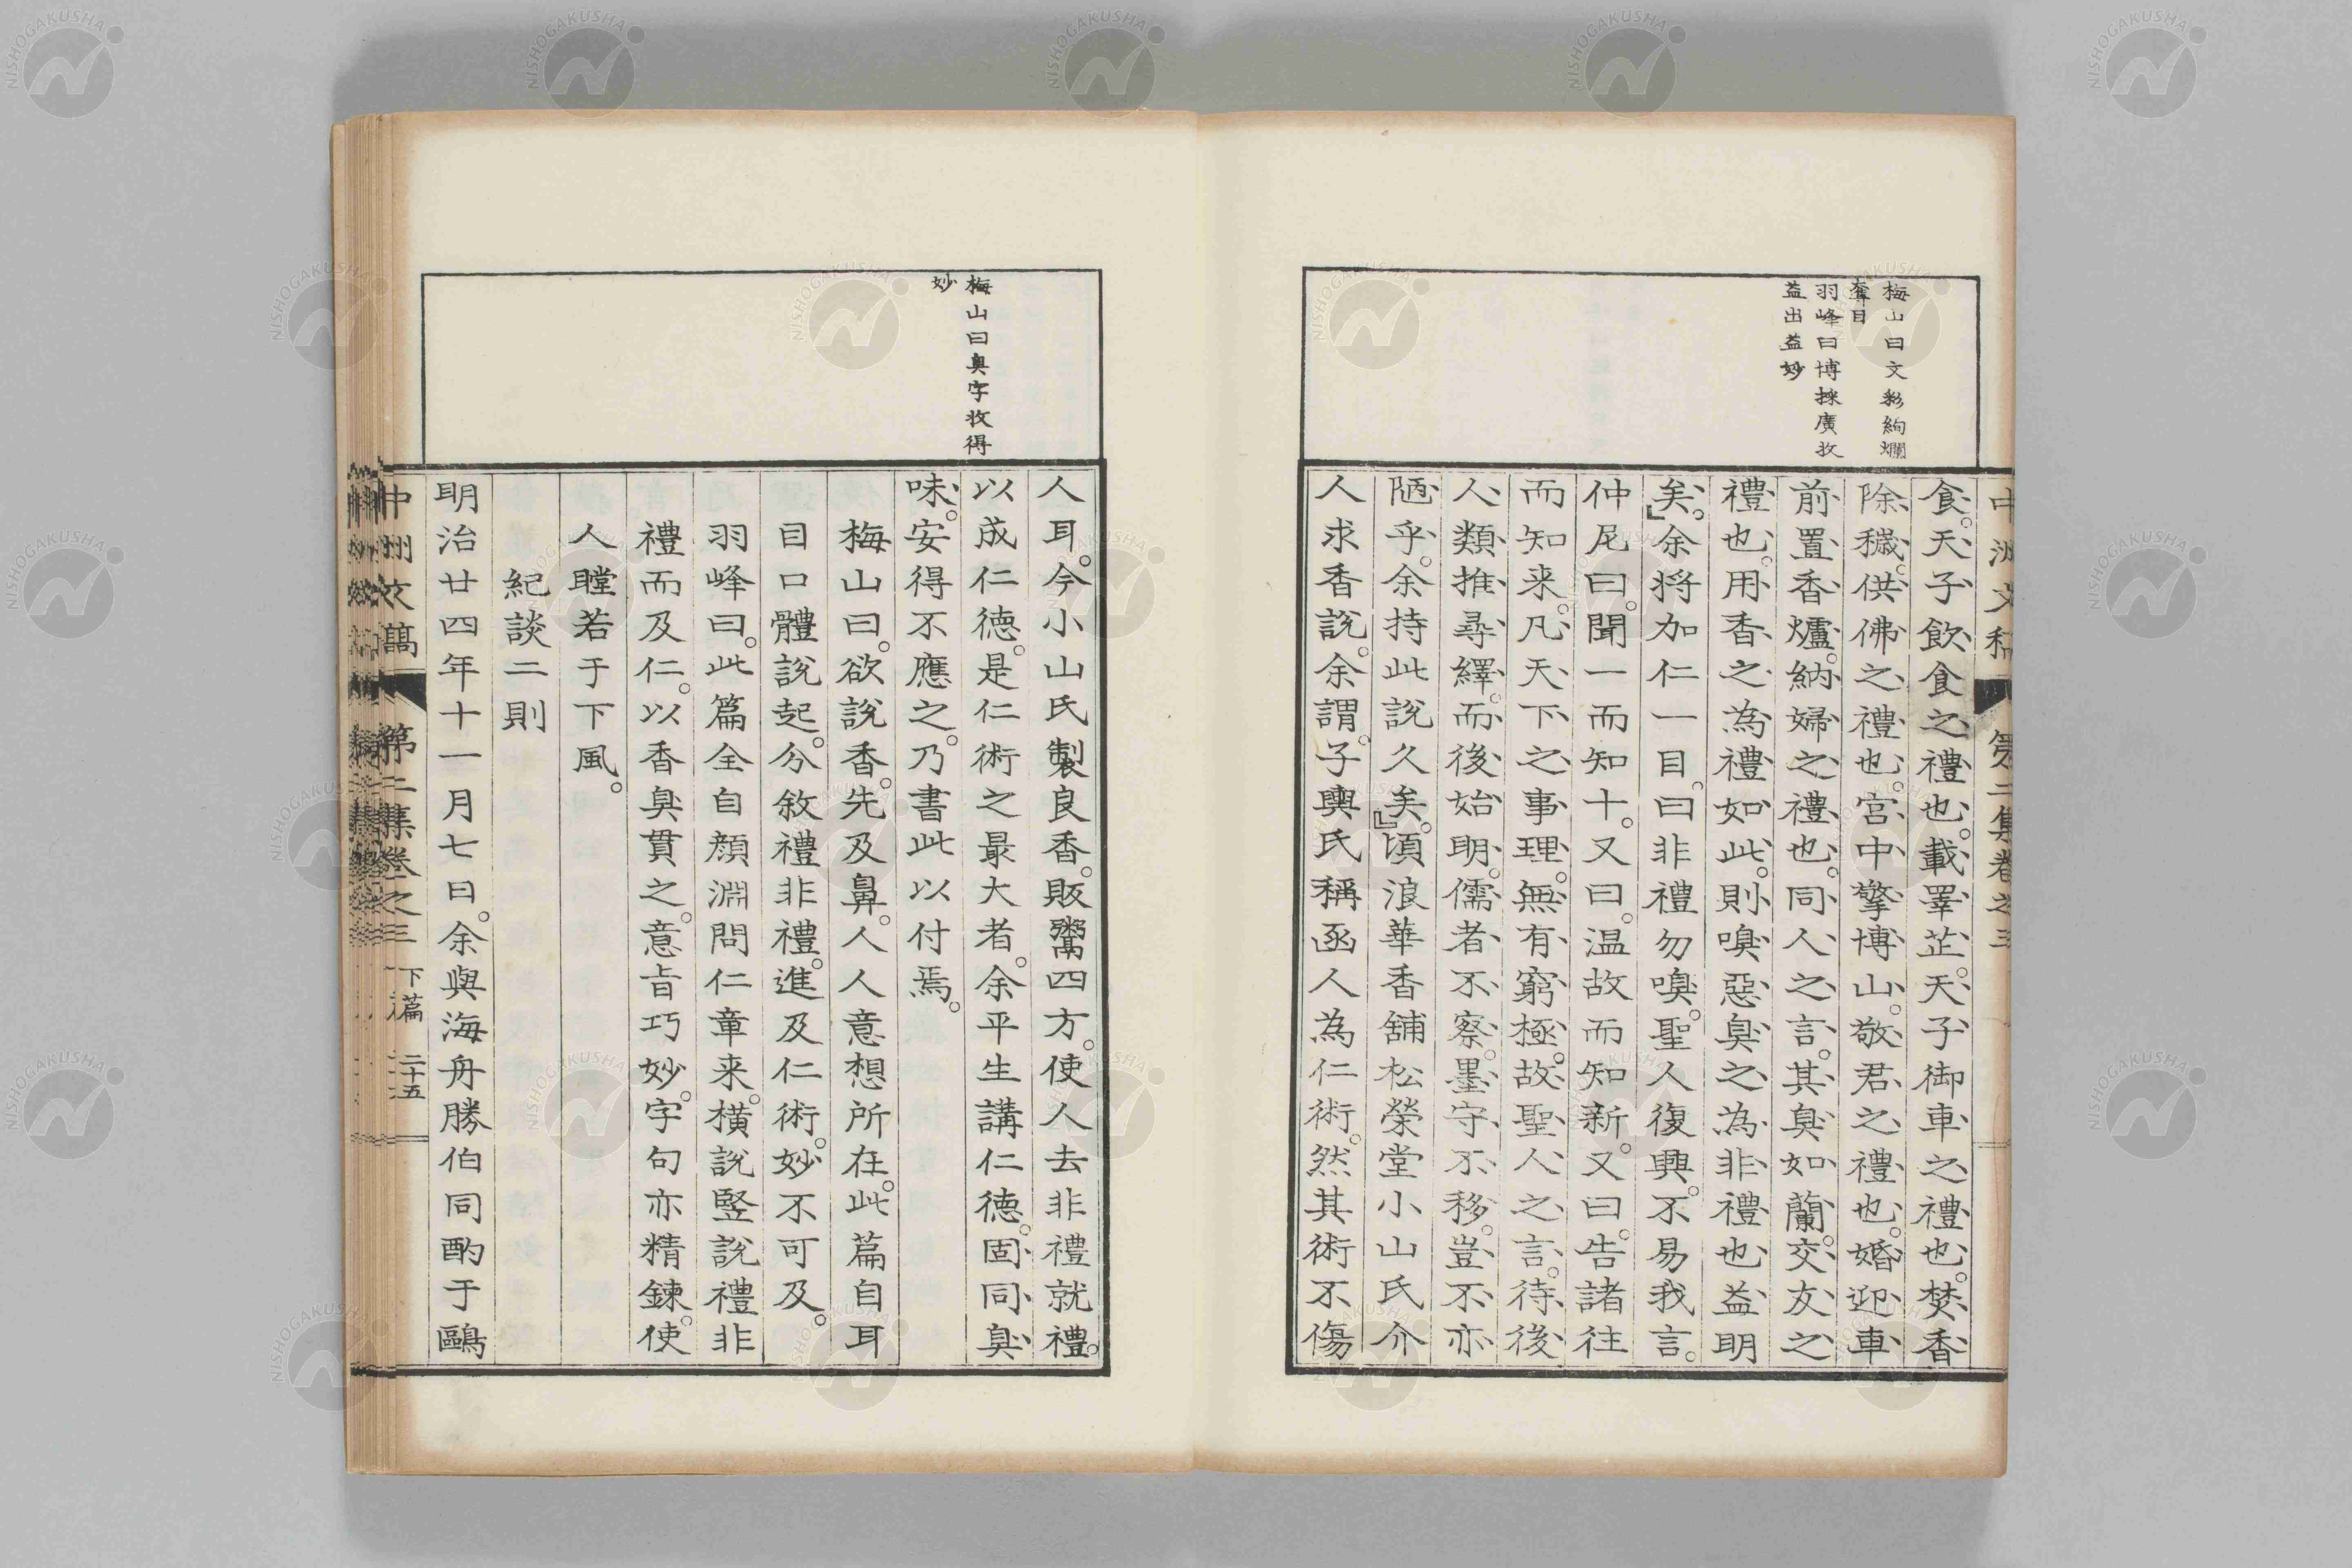 梅山曰文彩絢爛
奪目
羽峰曰博採廣牧
益出益妙
中洲文稿 第二集卷之三
食。天子飲食之禮也。載睪芷。天子御車之禮也。焚香
除穢。供佛之禮也。宮中擎博山。敬君之禮也。婚迎車
前置香爐。納婦之禮也。同人之言。其臭如蘭。交友之
禮也。用香之為禮如此。則嗅惡臭之為非禮也益明
矣。』余將加仁一目。曰非禮勿嗅。聖人復興。不易我言。
仲尼曰。聞一而知十。又曰。温故而知新。又曰。告諸往
而知来。凡天下之事理。無有窮極。故聖人之言。待後
人類推尋繹。而後始明。儒者不察。墨守不移。豈不亦
陋乎。余持此說久矣。』頃浪華香舖松榮堂小山氏介
人求香說。余謂。子輿氏稱函人為仁術。然其術不傷
梅山曰臭字牧得
妙
人耳。今小山氏製良香。販鬻四方。使人去非禮就禮。
以成仁德。是仁術之最大者。余平生講仁德。固同臭
味。安得不應之。乃書此以付焉。
梅山曰。欲說香。先及鼻。人人意想所在。此篇自耳
目口體說起。分敘禮非禮。進及仁術。妙不可及。
羽峰曰。此篇全自顏淵問仁章来。橫說竪說禮非
禮而及仁。以香臭貫之。意旨巧妙。字句亦精鍊。使
人瞠若于下風。
紀談二則
明治廿四年十一月七日。余與海舟勝伯同酌于鷗
中洲文藁 第二集卷之三 下篇 二十五